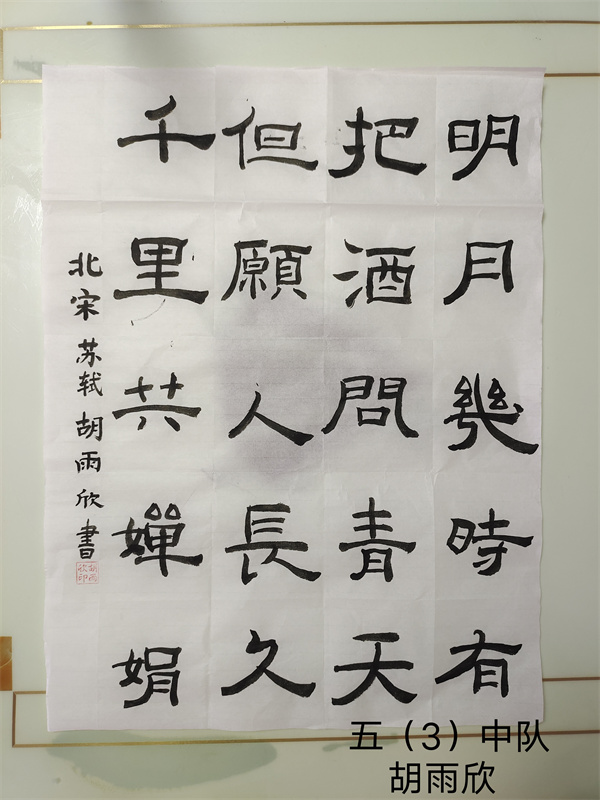 明月幾時有
把酒問青天
但願人長久
千里共嬋娟
北宋苏轼胡雨欣書
胡雨欣印
五（3）中队
胡雨欣